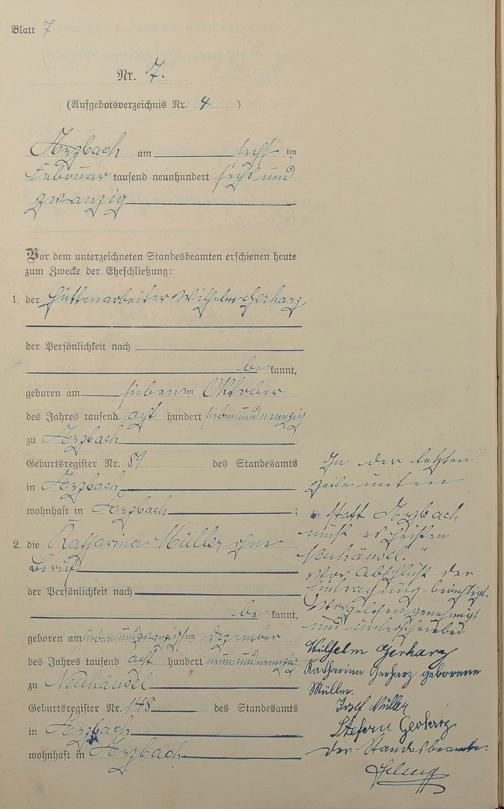 Blatt 7
Nr. 7.
(Aufgebotsverzeichnis Nr. 4)
Arzbach am sechsten
Februar tausend neunhundert sechs und
zwanzig
Vor dem unterzeichneten Standesbeamten erschienen heute
zum Zwecke der Eheschließung:
1. der Hüttenarbeiter Wilhelm Gerharz
der Persönlichkeit nach
be kannt,
geboren am siebenten Oktober
des Jahres tausend acht hundert siebenundneunzig
zu Arzbach
Geburtsregister Nr. des Standesamts
in Arzbach
wohnhaft in Arzbach ;
2. die Katharina Müller, ohne
Beruf
der Persönlichkeit nach
be kannt,
geboren am siebenundzwanzigsten Dezember
des Jahres tausend acht hundert neunundneunzig
zu Neuhäusel
Geburtsregister Nr. 148 des Standesamts
in Arzbach
wohnhaft in Arzbach
In der letzten
Zeile unten
statt Arzbach
muß es heißen
"Neuhäusel."
Vor Abschluß der
Eintragung berichtigt.
Vorgelesen, genehmigt
und unterschrieben
Wilhelm Gerharz
Katharina Gerharz geborene
Müller.
Josef Müller
Stefan Gerharz
Der Standesbeamte